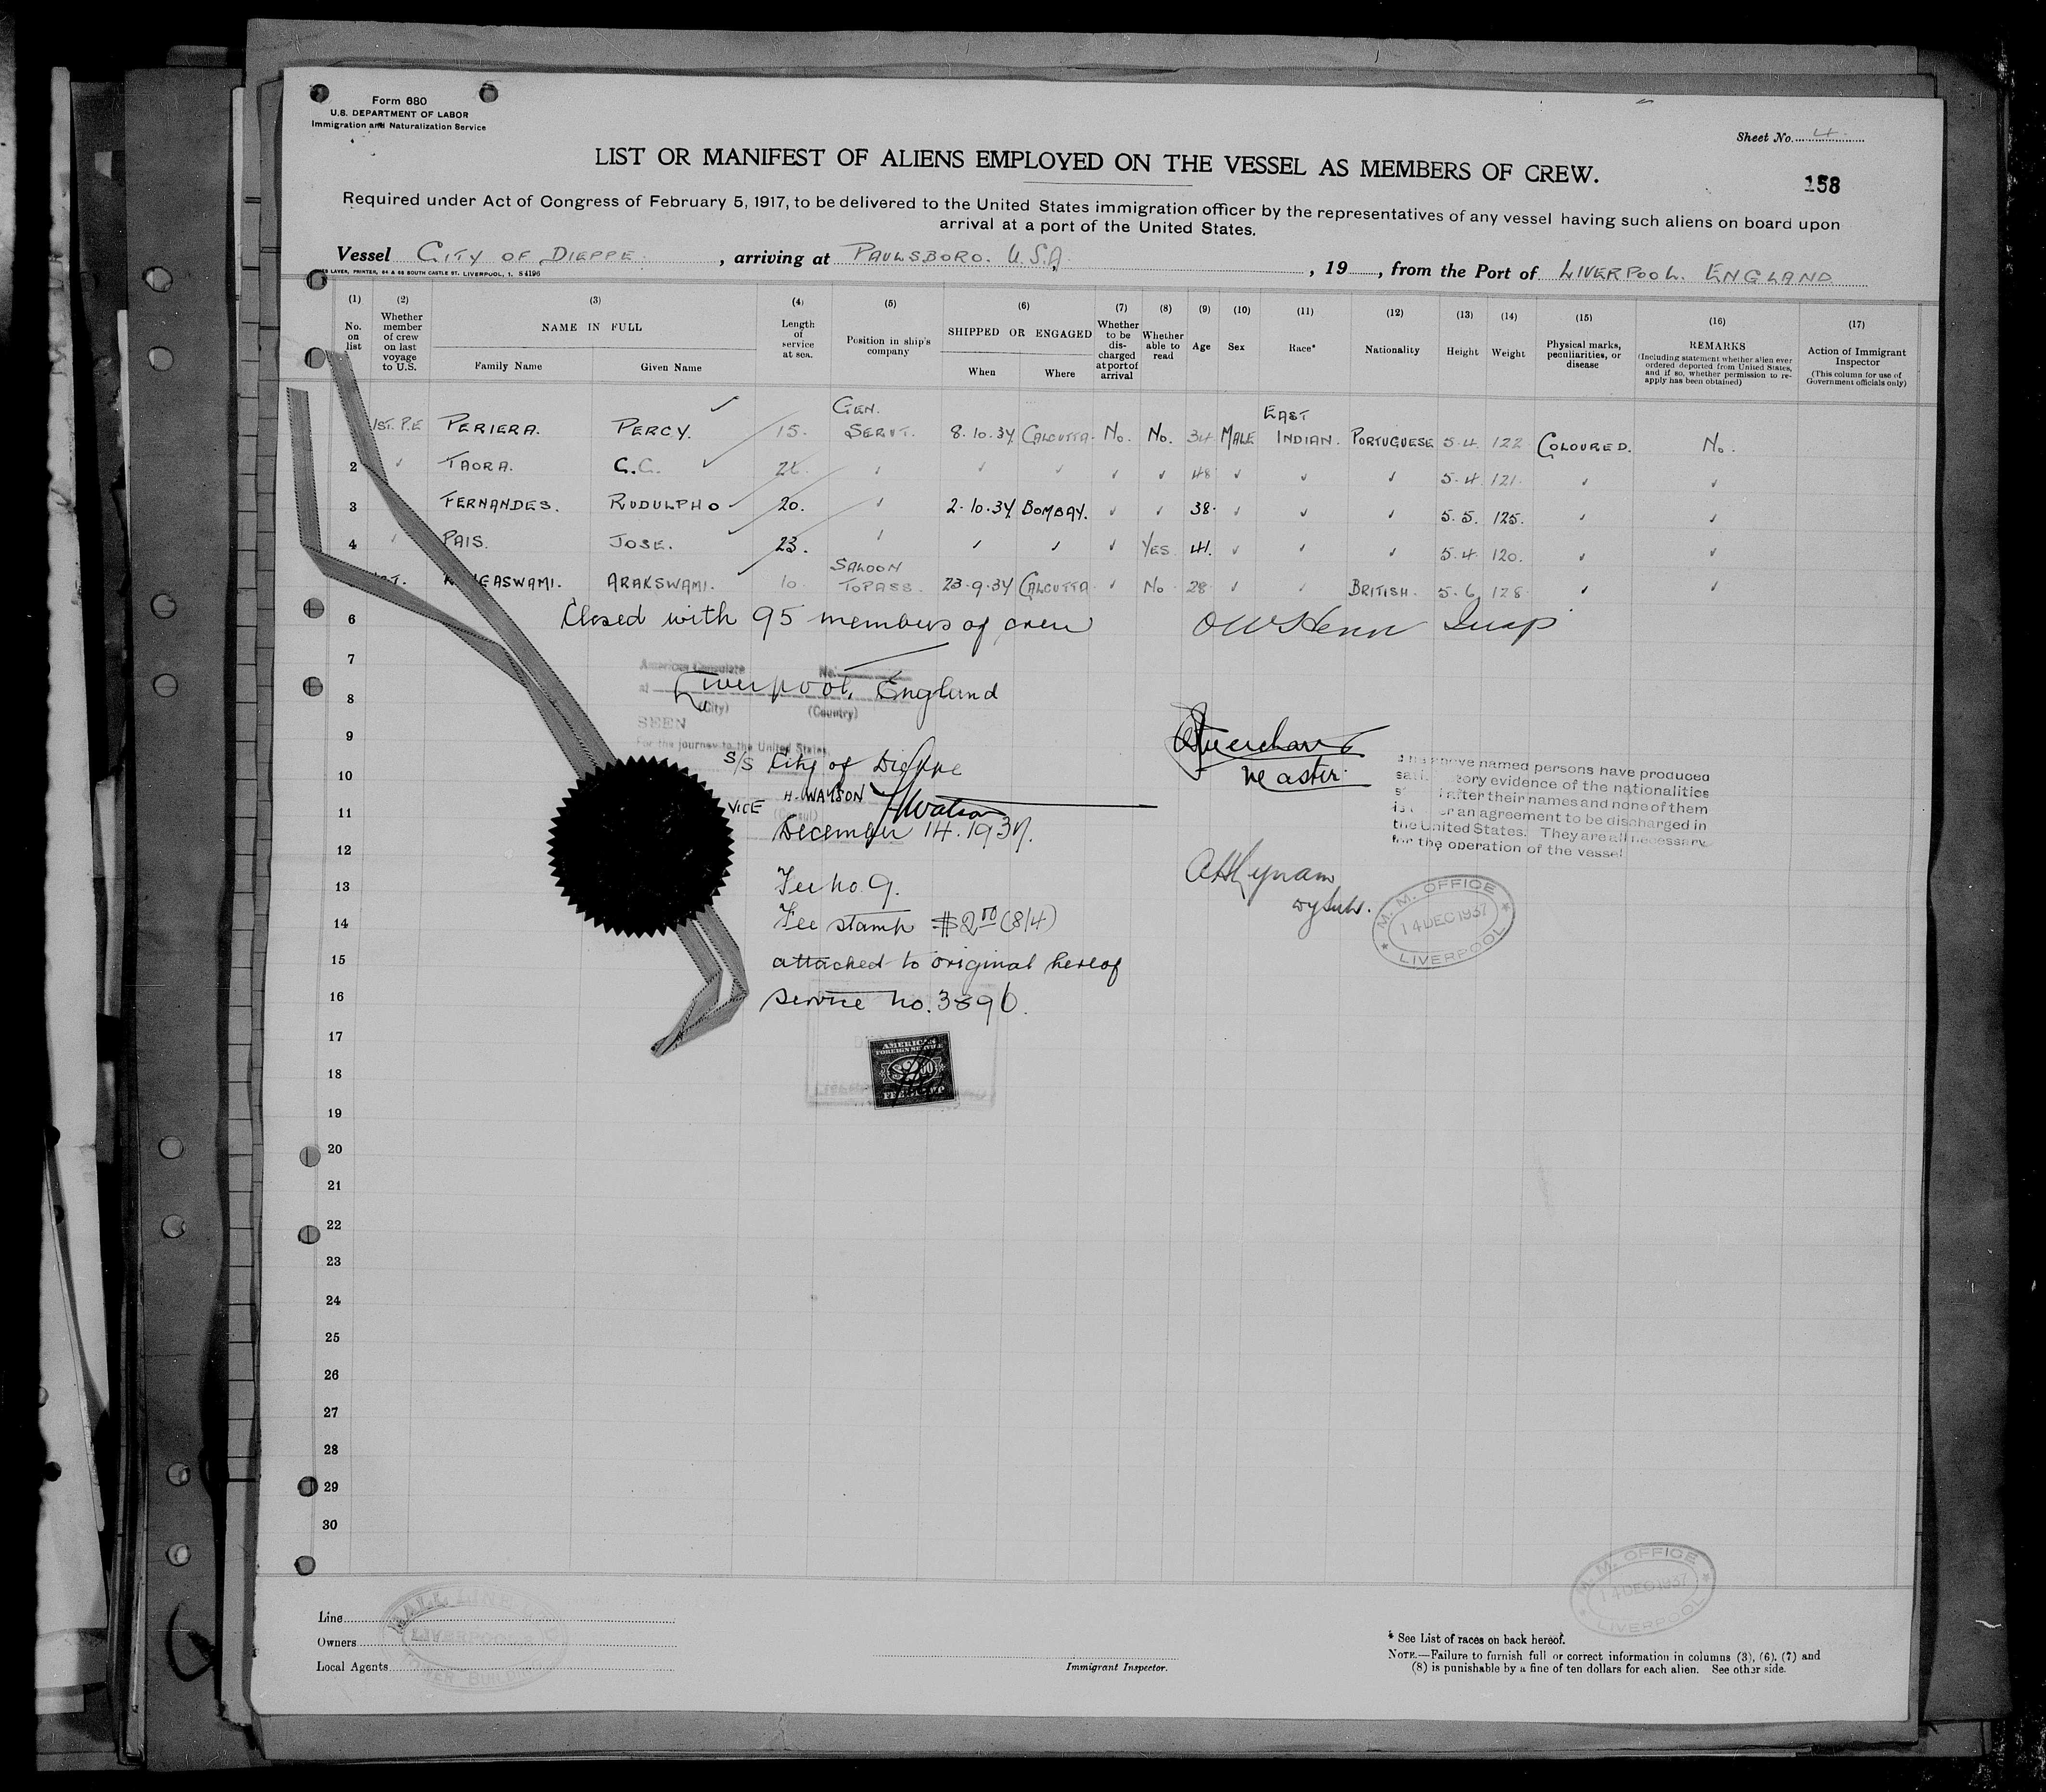 Form 680
U.S. DEPARTMENT OF LABOR
Immigration and Naturalization Service
Sheet No. 4
LIST OR MANIFEST OF ALIENS EMPLOYED ON THE VESSEL AS MEMBERS OF CREW.
158
Required under Act of Congress of February 5, 1917, to be delivered to the United States immigration officer by the representatives of any vessel having such aliens on board upon
arrival at a port of the United States.
Vessel CITY OF DIEPPE , arriving at PAULSBORO. U.S.A. , 19 , from the Port of LIVERPOOL. ENGLAND
LAYER, PRINTER, 64 & 66 SOUTH CASTLE ST. LIVERPOOL, 1. 84196
(1) No. on list
(2) Whether member of crew on last voyage to U.S.
(3) NAME IN FULL
Family Name Given Name
(4) Length of service at sea.
(5) Position in ship's company
(6) SHIPPED OR ENGAGED
When Where
(7) Whether to be discharged at port of arrival
(8) Whether able to read
(9) Age
(10) Sex
(11) Race*
(12) Nationality
(13) Height
(14) Weight
(15) Physical marks, peculiarities, or disease
(16) REMARKS
(Including statement whether alien ever ordered deported from United States, and if so, whether permission to re-apply has been obtained)
(17) Action of Immigrant Inspector
(This column for use of Government officials only)
1ST. P.E PERIERA. PERCY. ✓ 15. GEN. SERVT. 8.10.37 CALCUTTA. No. No. 34 MALE EAST INDIAN. PORTUGUESE 5.4. 122 COLOURED. No.
2 ✓ TAORA. C.C. ✓ ✓ ✓ ✓ ✓ ✓ 48 ✓ ✓ ✓ 5.4. 121. ✓ ✓
3 FERNANDES. RUDULPHO ✓ 20. ✓ 2.10.37 BOMBAY. ✓ ✓ 38. ✓ ✓ ✓ 5.5. 125. ✓ ✓
4 ✓ PAIS. JOSE. ✓ 23. ✓ ✓ ✓ ✓ YES. 41. ✓ ✓ ✓ 5.4. 120. ✓ ✓
ARAKSWAMI. ✓ 10. SALOON TOPASS. 23.9.37 CALCUTTA ✓ No. 28 ✓ ✓ BRITISH. 5.6. 128. ✓ ✓
6 Closed with 95 members of crew
7
American Consulate No.
8 at Liverpool, England
(City) (Country)
SEEN
9
For the journey to the United States.
10 S/S City of Dieppe
Master.
11 VICE H. WATSON HWatson
(Consul)
December 14. 1937.
The above named persons have produced
satisfactory evidence of the nationalities
after their names and none of them
is under an agreement to be discharged in
the United States. They are all necessary
for the operation of the vessel
12
13 Fee no. 9.
14 Fee stamp $2.00 (8/4)
M. M. OFFICE
14 DEC 1937
LIVERPOOL
15 attached to original hereof
16 Service No. 3896.
17
AMERICAN
FOREIGN SERVICE
$2.00
FEE STAMP
18
19
20
21
22
23
24
25
26
27
28
29
30
M. M. OFFICE
14 DEC 1937
LIVERPOOL
HALL LINE LTD
LIVERPOOL
TOWER BUILDING
Line
Owners
Local Agents
Immigrant Inspector.
* See List of races on back hereof.
NOTE.—Failure to furnish full or correct information in columns (3), (6), (7) and
(8) is punishable by a fine of ten dollars for each alien. See other side.